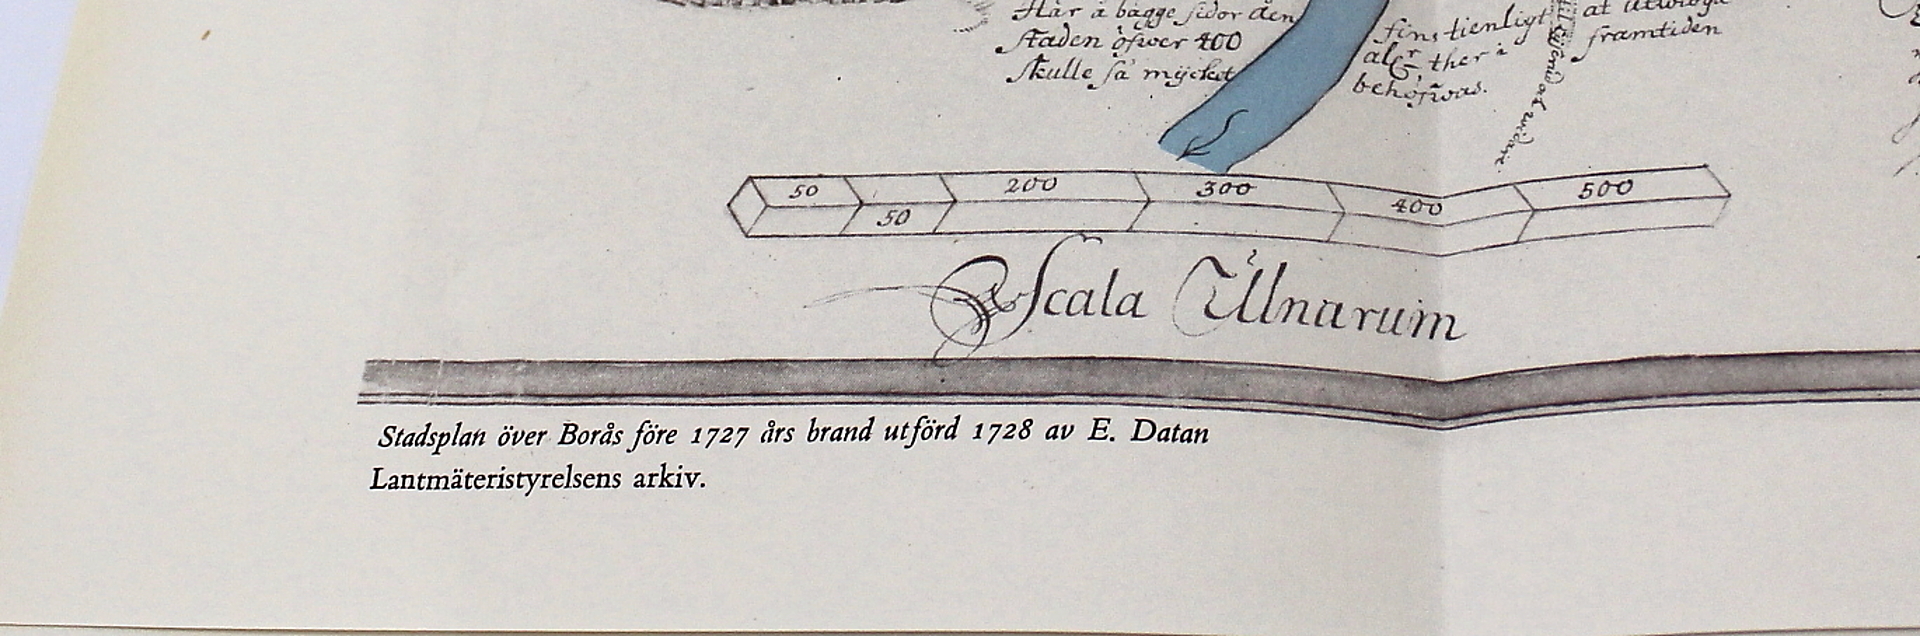 Här å bägge sidor den
staden öfwer 400
skulle så mÿcket
fins tienligt
ther i
behöfwas.
at utwidga
framtiden
50 200 300 400 500
50
Scala Ulnarum
Stadsplan över Borås före 1727 års brand utförd 1728 av E. Datan
Lantmäteristyrelsens arkiv.